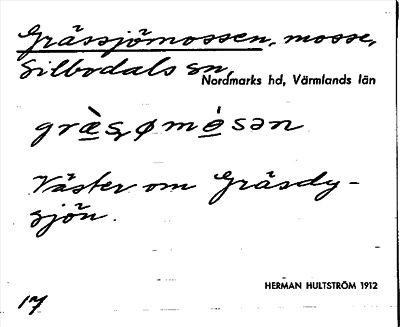 Grässjömossen, mosse,
Silbodals sn,
Nordmarks hd, Värmlands län
Väster om Gräsdy-
sjön.
HERMAN HULTSTRÖM 1912
17